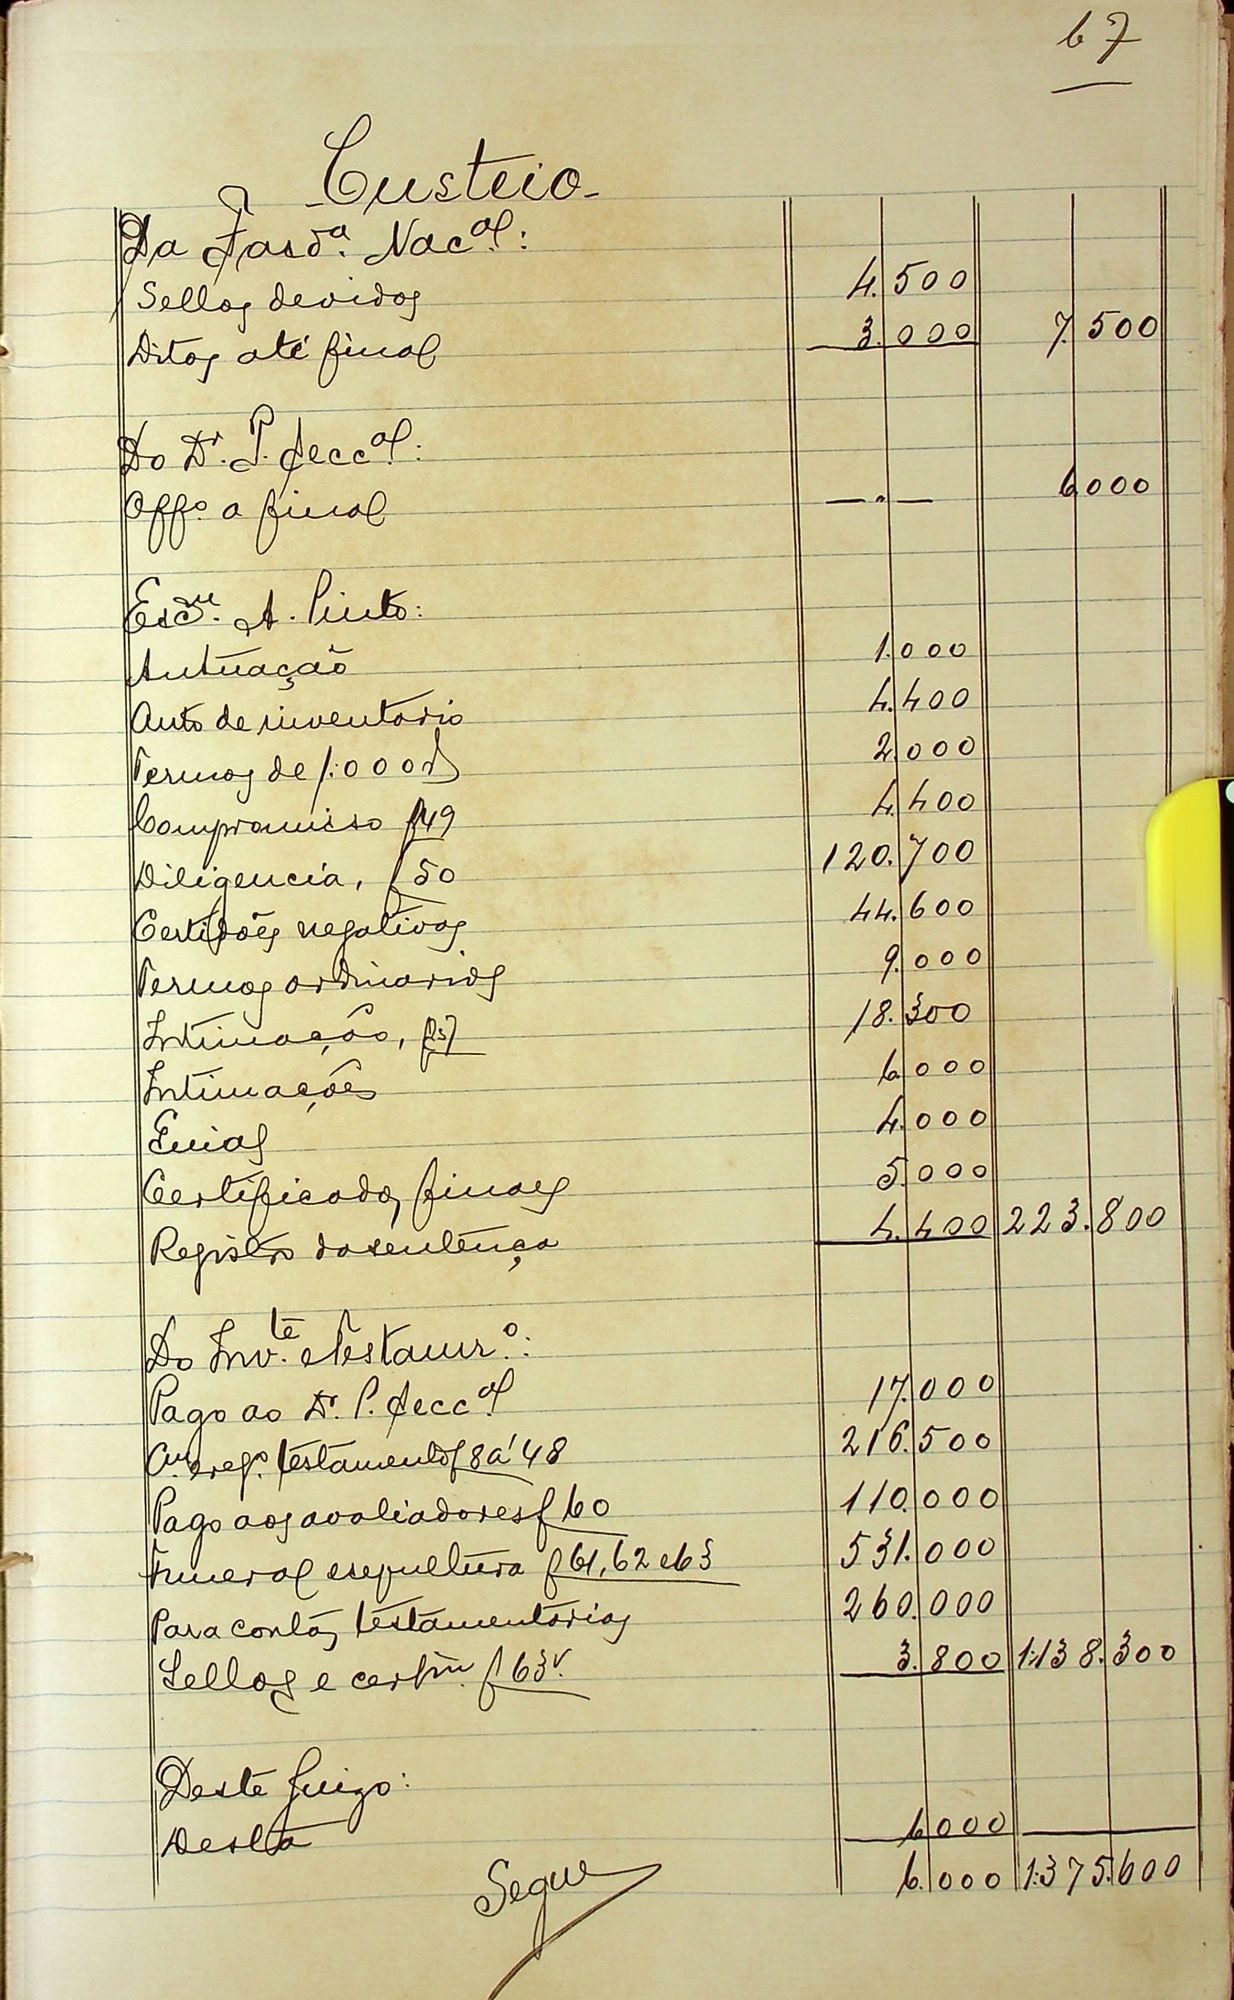 67
Custeio
Da Fasdª. Nacal.:
Sellos devidos 4.500
Ditos até final 3.000 7.500
Do Dr. P. Seccal.:
Offº a final —.— 6.000
Escm. A. Pinto:
Autuação 1.000
Auto de inventario 4.400
Termos de 1:000$ 2.000
Compromisso f49 4.400
Diligencia, f50 120.700
Certidões negativas 44.600
Termos ordinarios 9.000
Intimação, 18.300
Intimações 6.000
Guias 4.000
Certificados finaes 5.000
Registro da sentença 4.400 223.800
Do Invte. e Testamrº.:
Pago ao Dr. P. Seccal. 17.000
regº. testamento f8 a 48 216.500
Pago aos avaliadores f60 110.000
Funeral e sepultura f61, 62 e 63 531.000
Para contas testamentarias 260.000
Sellos e certm. f63v. 3.800 1:138.300
Deste Juizo:
Desta 6.000
6.000 1:375.600
Segue